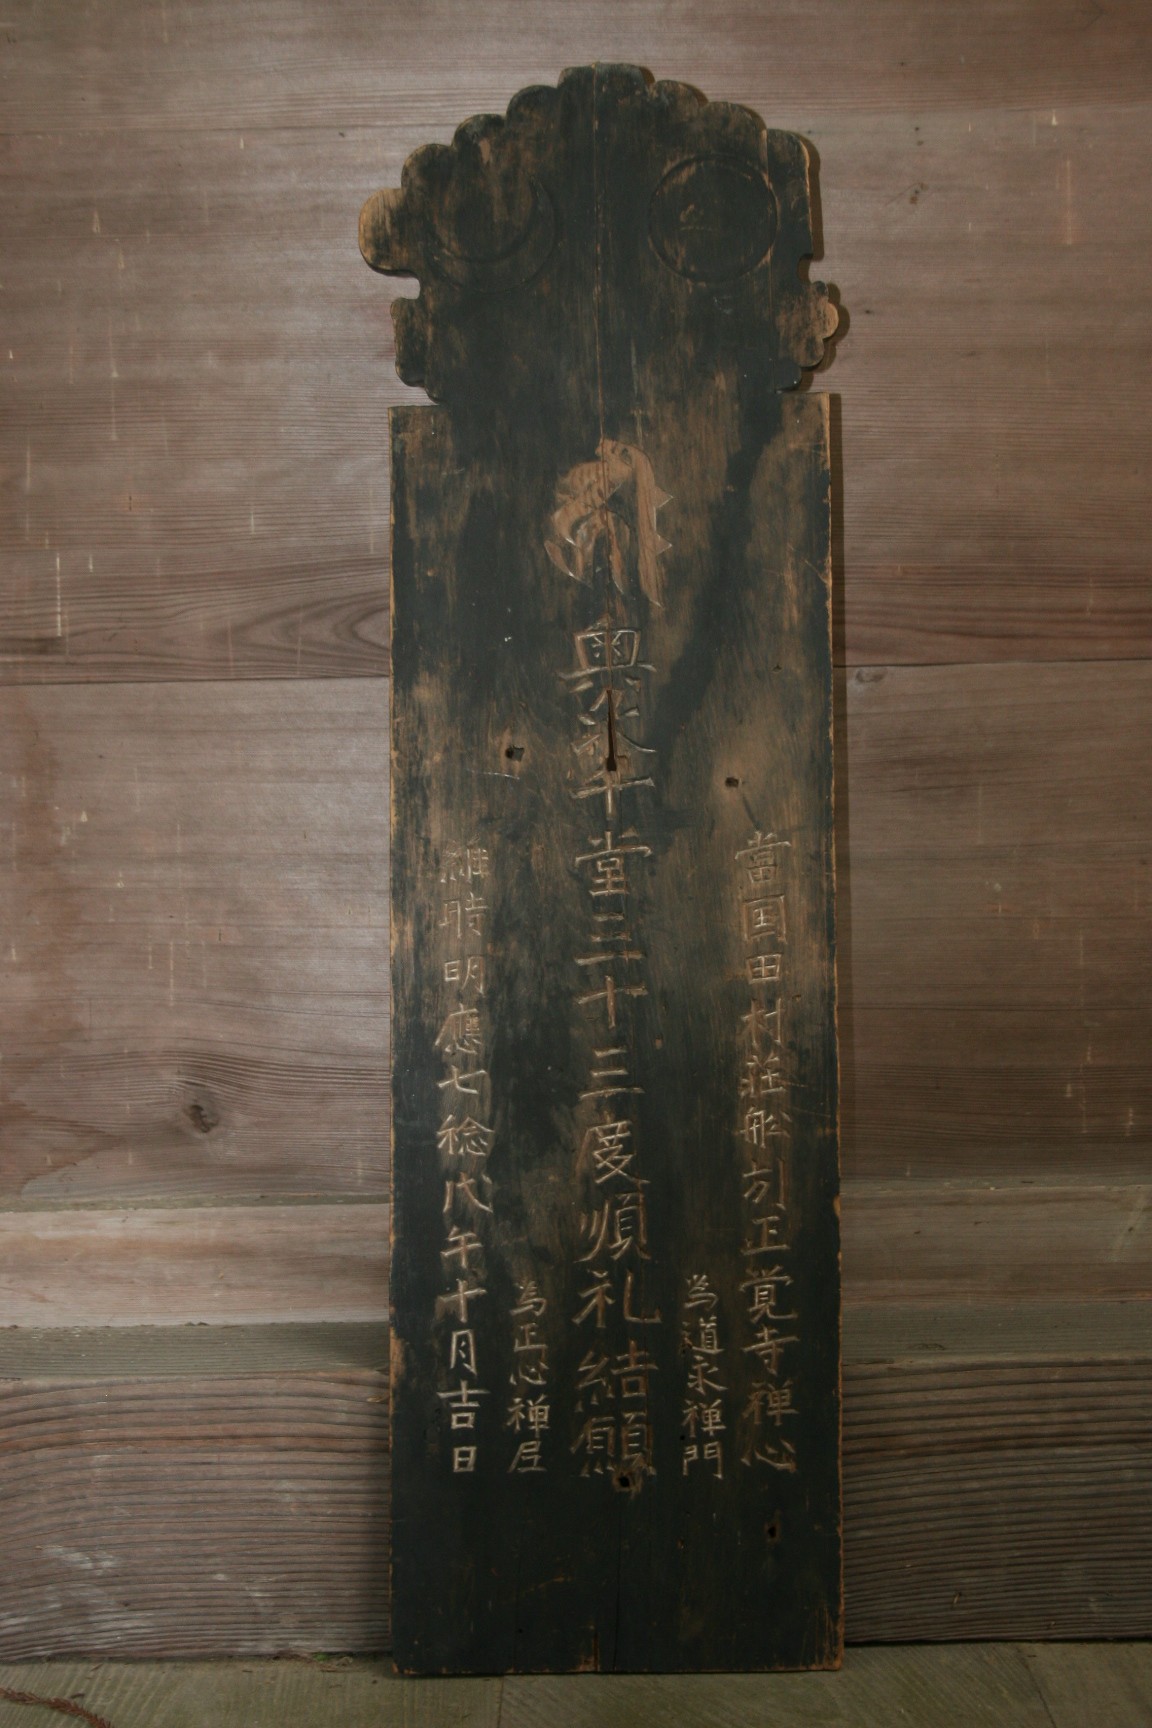 當国田村莊舩引正覚寺禅心
為道永禅門
奥州六十堂三十三度順礼結願
為正心禅尼
維時明應七稔戊午十月吉日